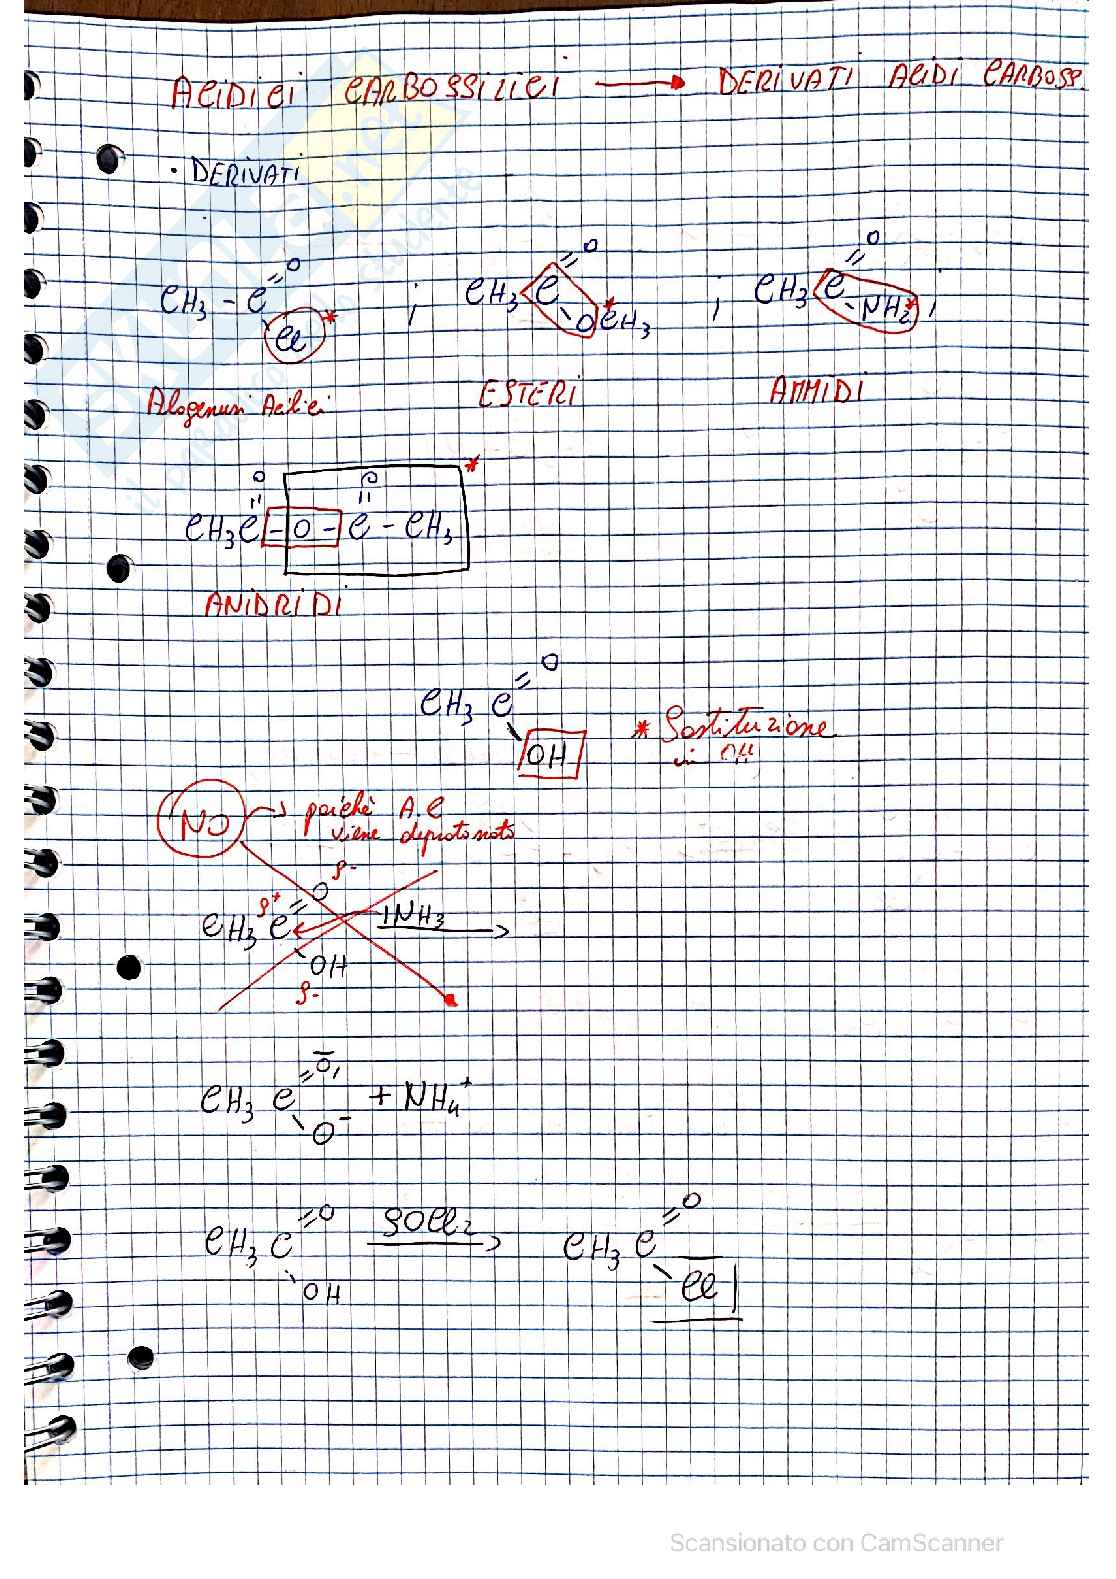 ACIDI CI CARBOSSILICI → DERIVATI ACIDI CARBOSS.
· DERIVATI
CH3 - C =O Cl * ; CH3 C =O OCH3 * ; CH3 C =O NH2 * ;
Alogenuri Acilici ESTERI AMMIDI
O O *
CH3 C - O - C - CH3
ANIDRIDI
CH3 C =O OH
* Sostituzione
in OH
NO → poichè A.C
viene deprotonato
CH3 C =O OH δ+ δ- δ- |NH3 →
CH3 C =O O- + NH4+
CH3 C =O OH SOCl2 → CH3 C =O Cl
SKUOLA.net
il paradiso dello studente
Scansionato con CamScanner